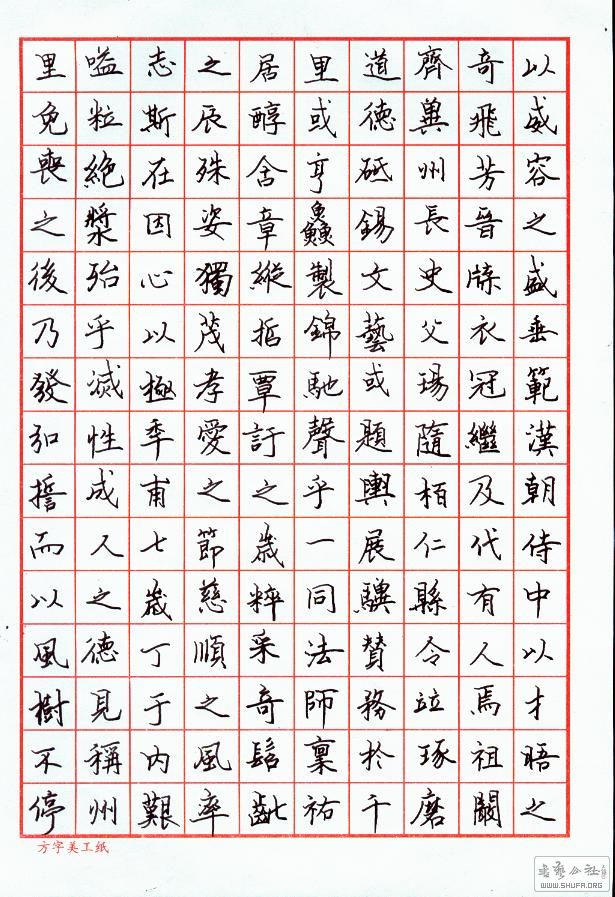 以威容之盛垂範漢朝侍中以才晤之
奇飛芳晉牒衣冠繼及代有人焉祖闕
齊冀州長史父瑒隨柏仁縣令竝琢磨
道德砥錫文藝或題輿展驥贊務於千
里或亨鱻製錦馳聲乎一同法師稟祐
居醇含章縱哲覃訏之歲粹采奇髫齔
之辰殊姿獨茂孝愛之節慈順之風率
志斯在因心以極年甫七歲丁于內艱
嗌粒絕漿殆乎滅性成人之德見稱州
里免喪之後乃發弘誓而以風樹不停
方字美工纸
WWW.SHUFA.ORG